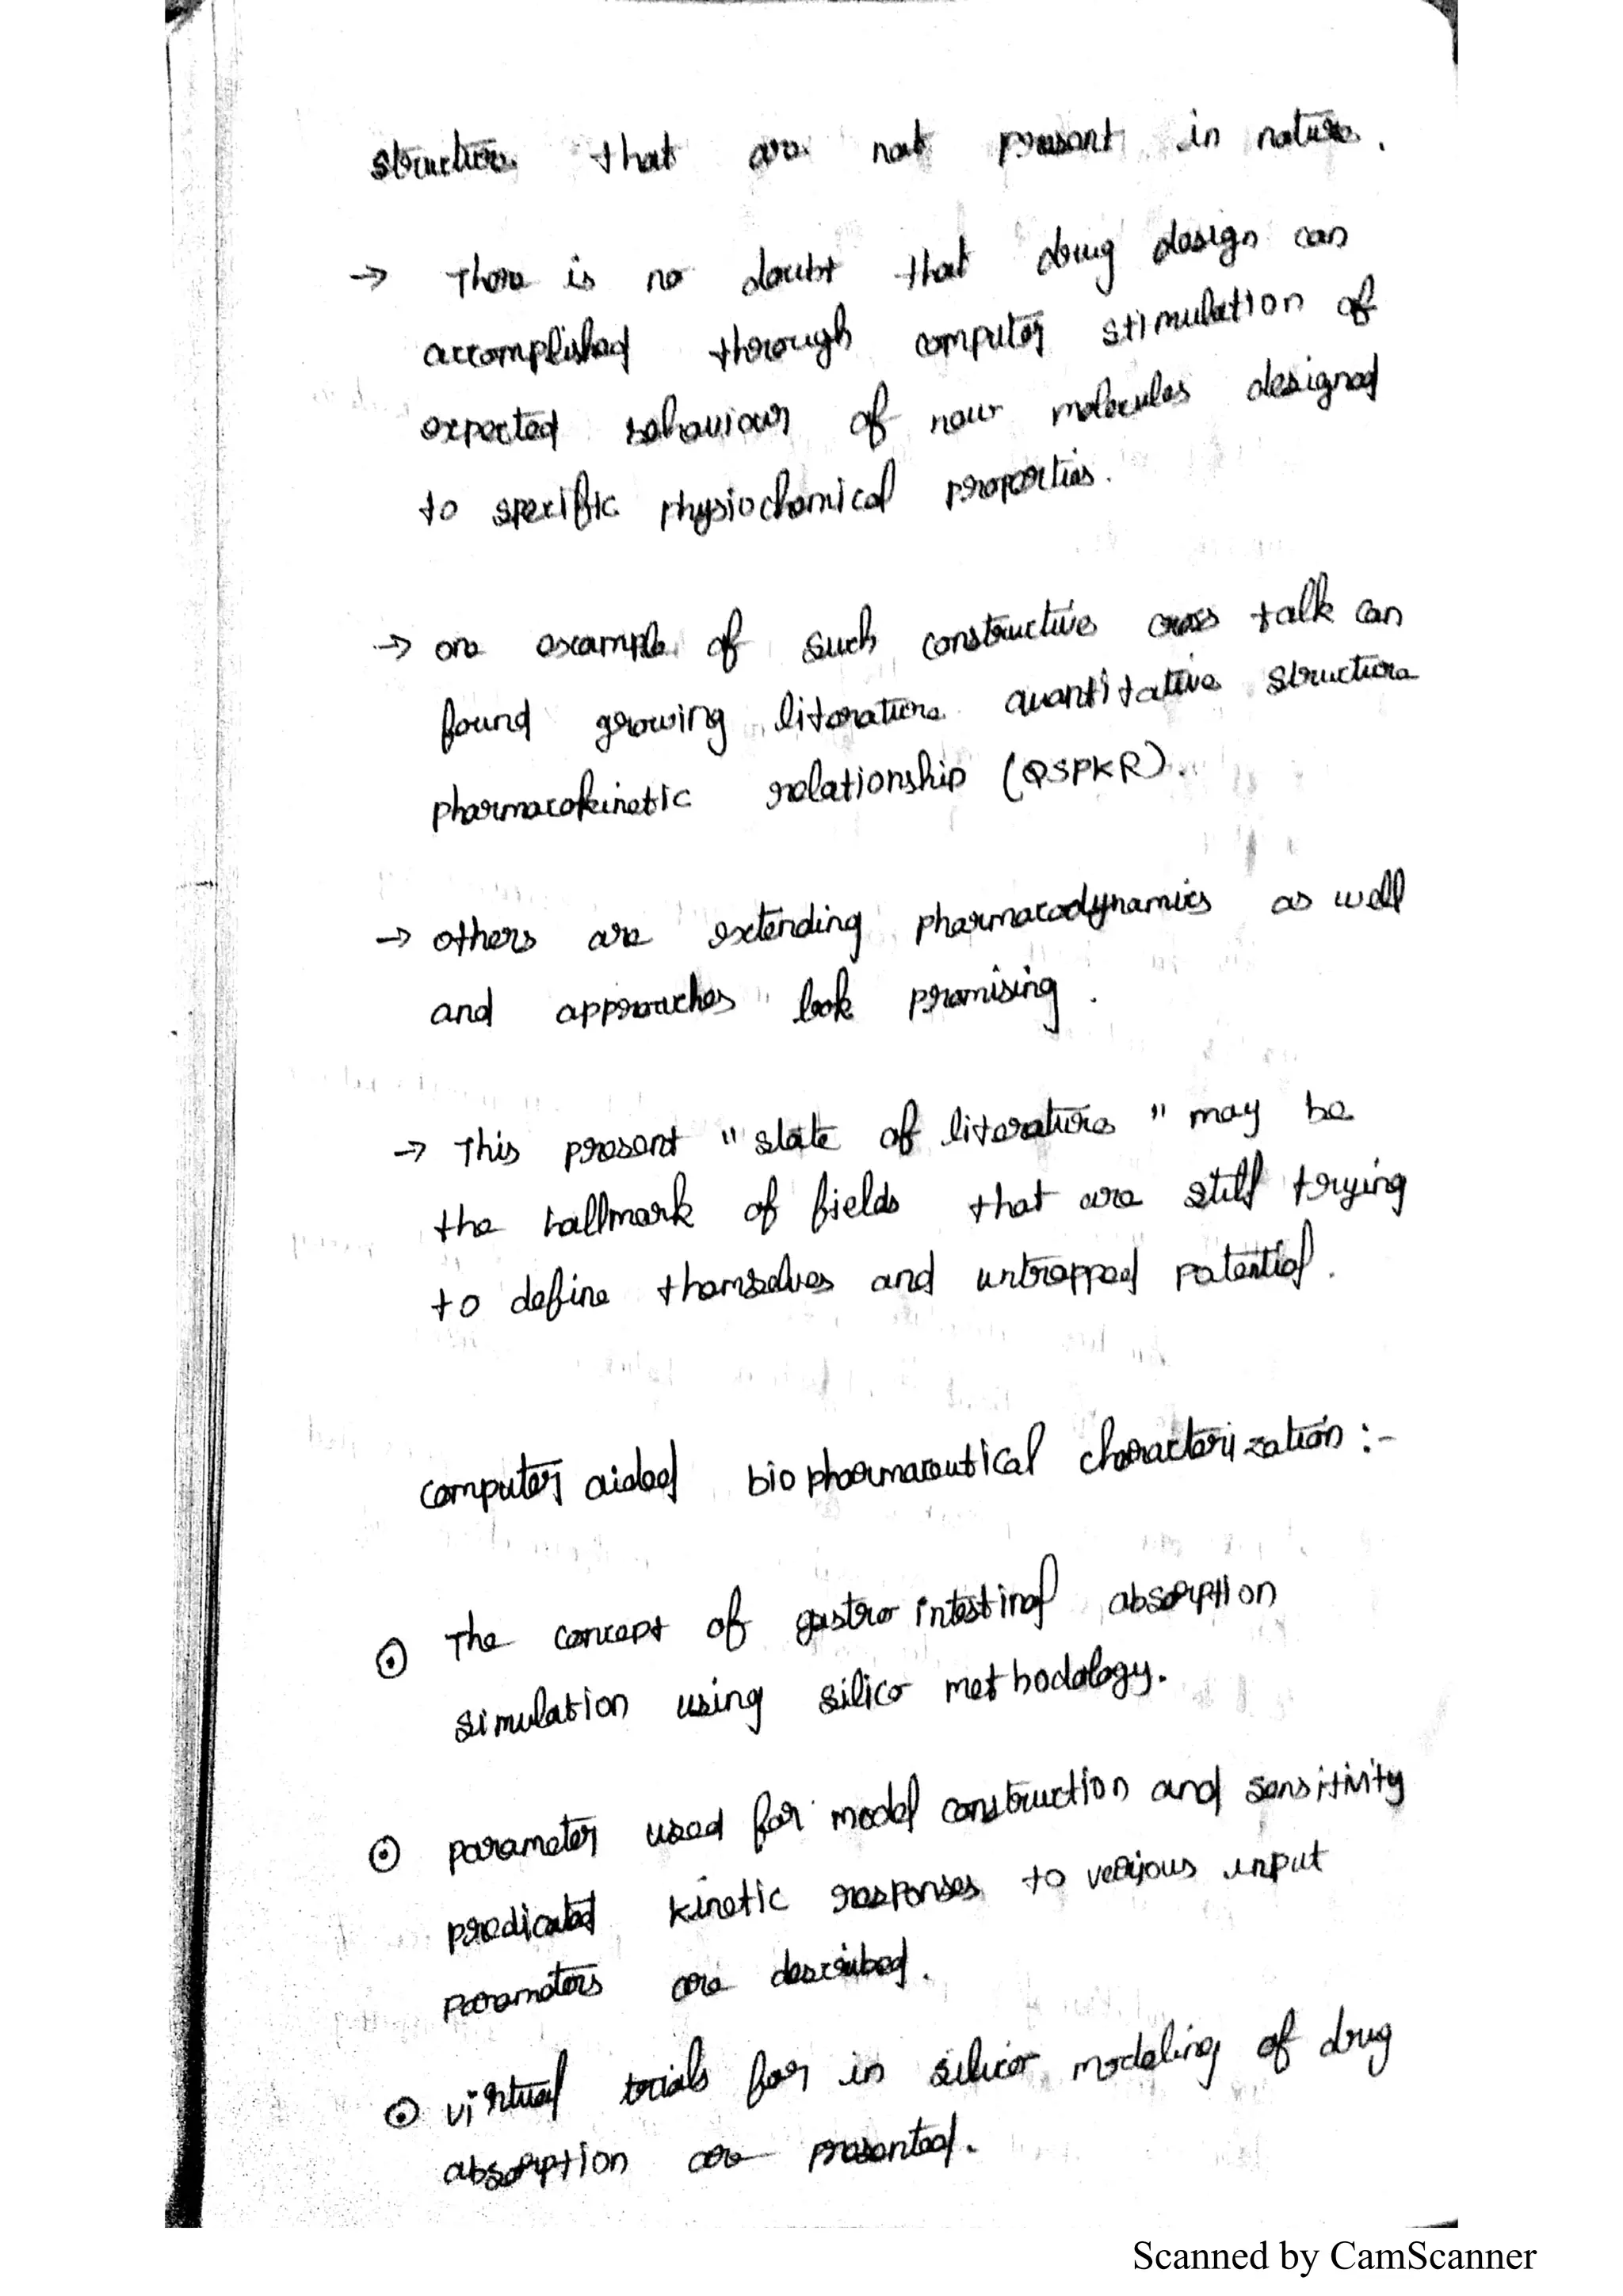 structure that are not present in nature.
→ There is no doubt that drug design can
accomplished through computer stimulation of
expected behaviour of new molecules designed
to specific physiochemical properties.
→ one example of such constructive cross talk can
found growing literature quantitative structure
pharmacokinetic relationship (QSPKR).
→ others are extending pharmacodynamics as well
and approaches look promising.
→ This present "state of literature" may be
the hallmark of fields that are still trying
to define themselves and untrapped potential.
computer aided biopharmaceutical characterization :-
⊙ The concept of gastro intestinal absorption
simulation using silico methodology.
⊙ parameter used for model construction and sensitivity
predicated kinetic responses to various input
parameters are described.
⊙ virtual trials for in silico modeling of drug
absorption are presented.
Scanned by CamScanner